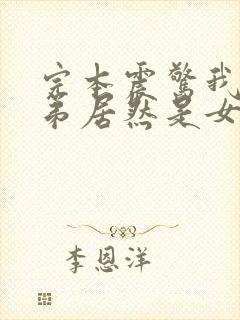 完本震驚我
弟居然是女
李恩洋